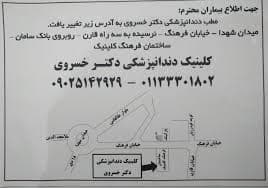 جهت اطلاع بیماران محترم:
مطب دندانپزشکی دکتر خسروی به آدرس زیر تغییر یافت.
میدان شهدا - خیابان فرهنگ - نرسیده به سه راه قارن - روبروی بانک سامان -
ساختمان فرهنگ کلینیک
کلینیک دندانپزشکی دکتـر خسروی
۰۹۰۲۵۱۴۲۹۲۹ - ۰۱۱۳۳۳۰۱۸۰۲
خیابان فرهنگ
خیابان فرهنگ
کلینیک دندانپزشکی
دکتر خسروی